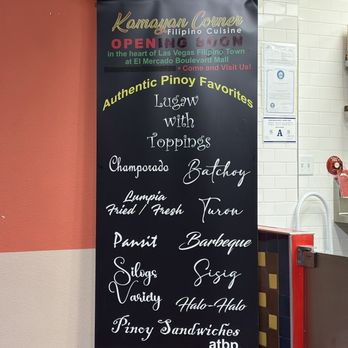 Kamayan Corner
Filipino Cuisine
OPENING SOON
in the heart of Las Vegas Filipino Town
at El Mercado Boulevard Mall
Come and Visit Us!
Authentic Pinoy Favorites
Lugaw
with
Toppings
Champorado Batchoy
Lumpia
Fried / Fresh Turon
Pansit Barbeque
Silogs Sisig
Variety Halo-Halo
Pinoy Sandwiches
atbp
A